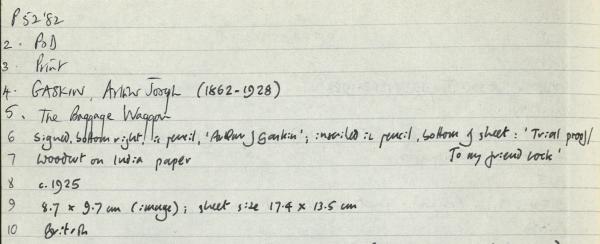 P52'82
2. PoD
3. Print
4. GASKIN, Arthur Joseph (1862-1928)
5. The Baggage Waggon
6 Signed, bottom right, in pencil, 'Arthur J Gaskin'; inscribed in pencil, bottom of sheet: 'Trial proof/
To my friend Cock'
7 Woodcut on India paper
8 c.1925
9 8.7 x 9.7 cm (image); sheet size 17.4 x 13.5 cm
10 British